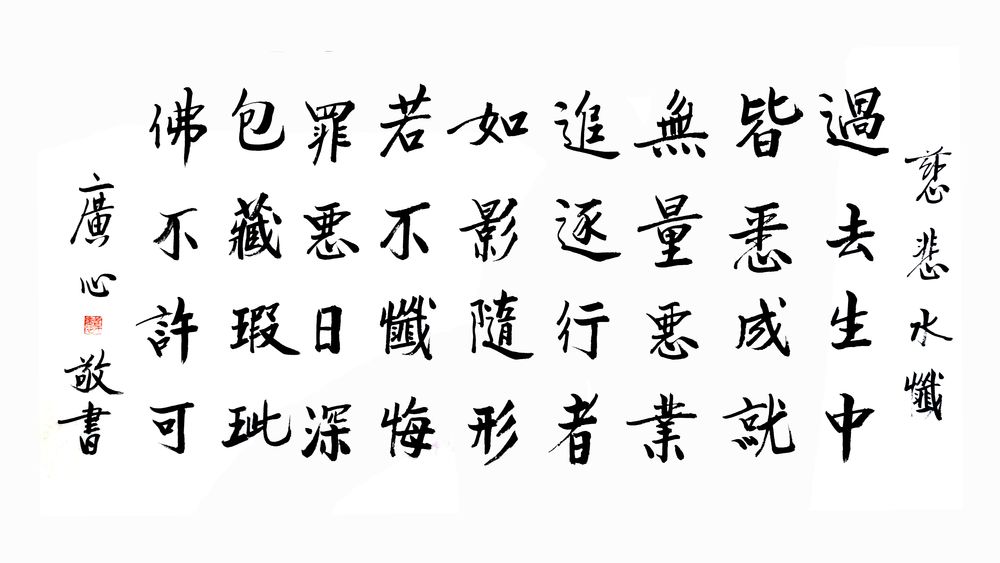 慈悲水懺
過去生中
皆悉成就
無量惡業
追逐行者
如影隨形
若不懺悔
罪惡日深
包藏瑕玼
佛不許可
廣心
敬書